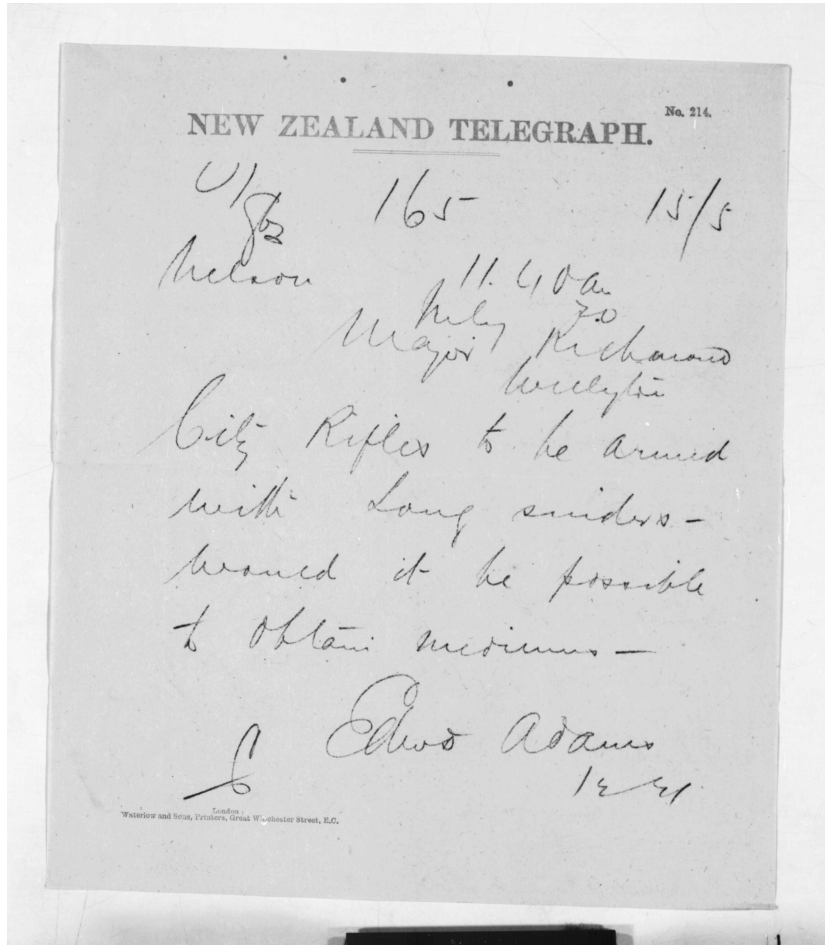 No. 214.
NEW ZEALAND TELEGRAPH.
165 15/5
Nelson 11.40 a
Major Richmond
Wellington
City Rifles to be armed
with Long sniders –
would it be possible
to obtain mediums –
Edwd Adams
London:
Waterlow and Sons, Printers, Great Winchester Street, E.C.